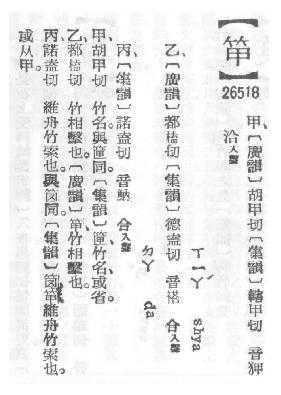 【笚】
26518
甲、〔廣韻〕胡甲切〔集韻〕轄甲切 音狎
洽入聲 ㄒㄧㄚˊ shya
乙、〔廣韻〕都榼切〔集韻〕德盍切 音褡 合入聲
ㄉㄚ da
丙、〔集韻〕諾盍切 音魶 合入聲
甲、胡甲切 竹名與筪同。〔集韻〕筪、竹名、或省。
乙、都榼切 竹相擊也。〔廣韻〕笚、竹相擊也。
丙、諾盍切 維舟竹索也。與同。〔集韻〕笚維舟竹索也。
或从甲。